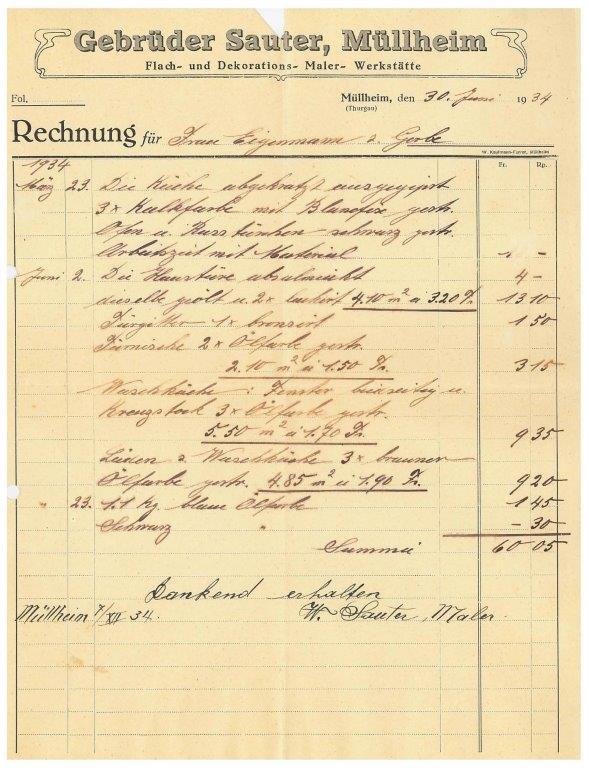 Gebrüder Sauter, Müllheim
Flach- und Dekorations- Maler- Werkstätte
Fol.
Müllheim, den 30. Juni 1934
(Thurgau)
Rechnung für Frau Eigenmann z. Gerbe
W. Kaufmann-Furrer, Müllheim
1934 Fr. Rp.
März 23. Die Küche abgekratzt ausgegipst
3 x Kalkfarbe mit Blanofixe gestr.
Ofen u. schwarz gestr.
Arbeitszeit mit Material
Juni 2. Die Haustüre 4 -
dieselbe geölt u. 2 x lackiert 4.10 m² à 3.20 Fr. 13 10
Türgitter 1 x bronziert 1 50
2 x Ölfarbe gestr.
2.10 m² à 1.50 Fr. 3 15
Waschküche : Fenster beidseitig u.
Kreuzstock 3 x Ölfarbe gestr.
5.50 m² à 1.70 Fr. 9 35
Läden z. Waschküche 3 x brauner
Ölfarbe gestr. 4.85 m² à 1.90 Fr. 9 20
" 23. 1.1 Kg. blaue Ölfarbe 1 45
Schwarz " - 30
Summa 60 05
Dankend erhalten
Müllheim 7/XII 34. W. Sauter, Maler.